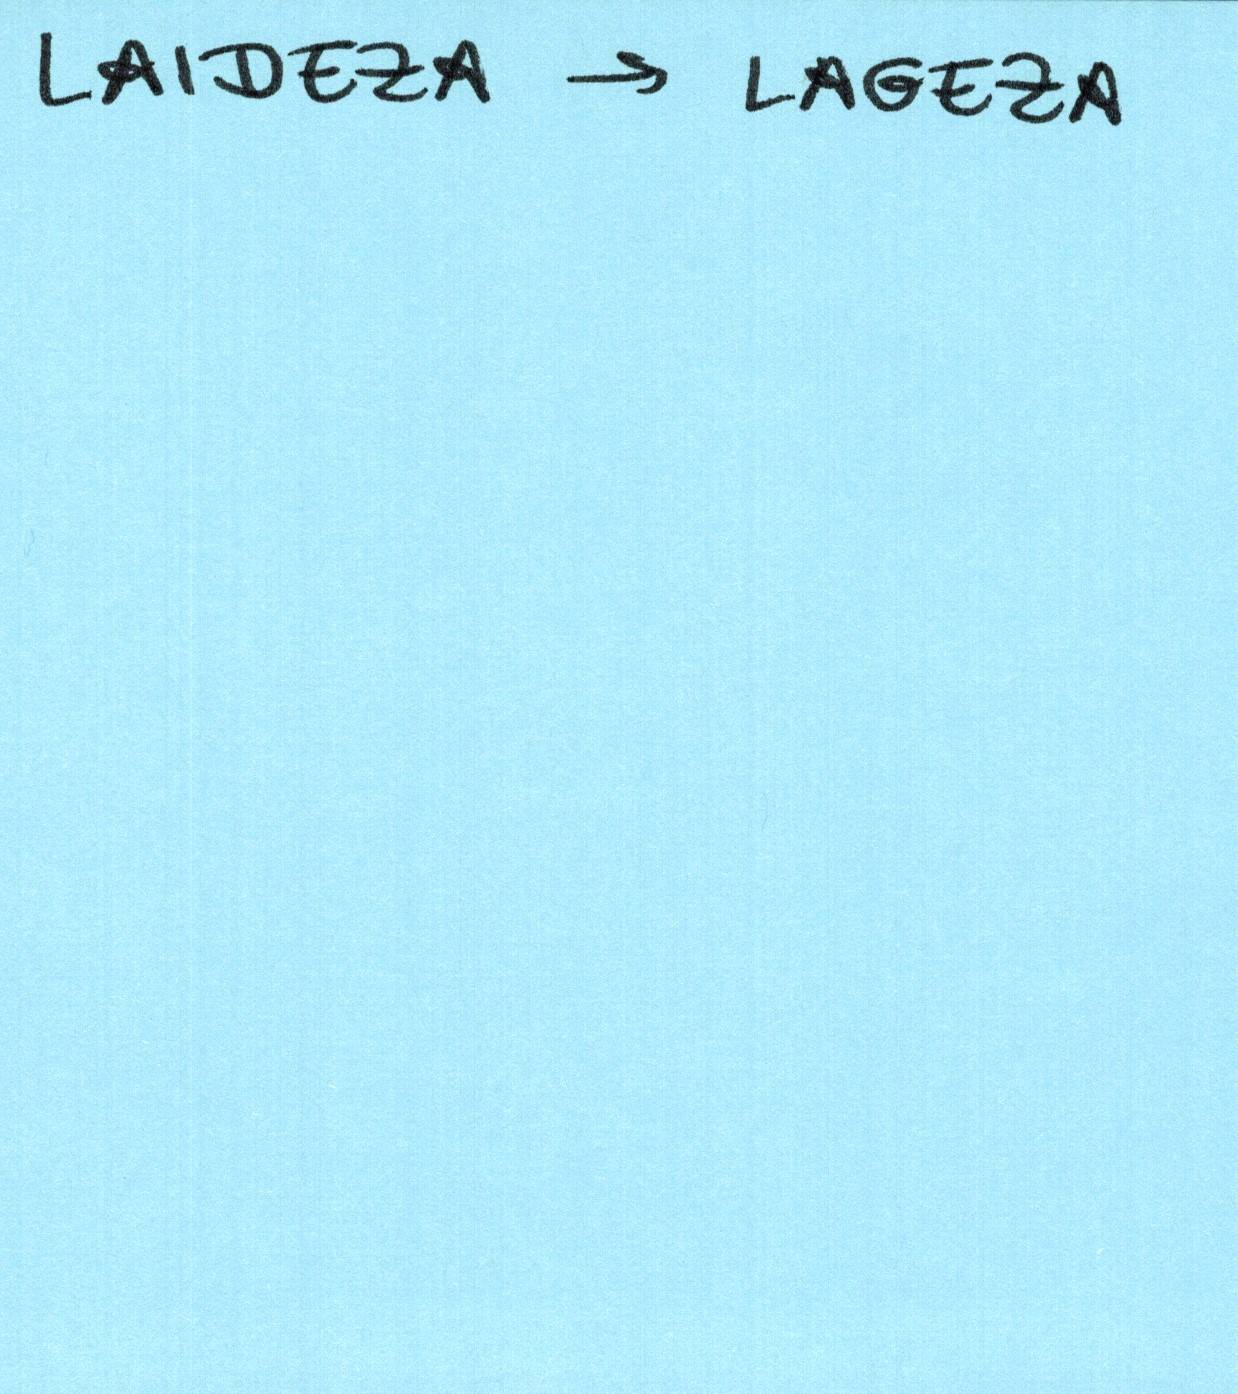 LAIDEZA → LAGEZA